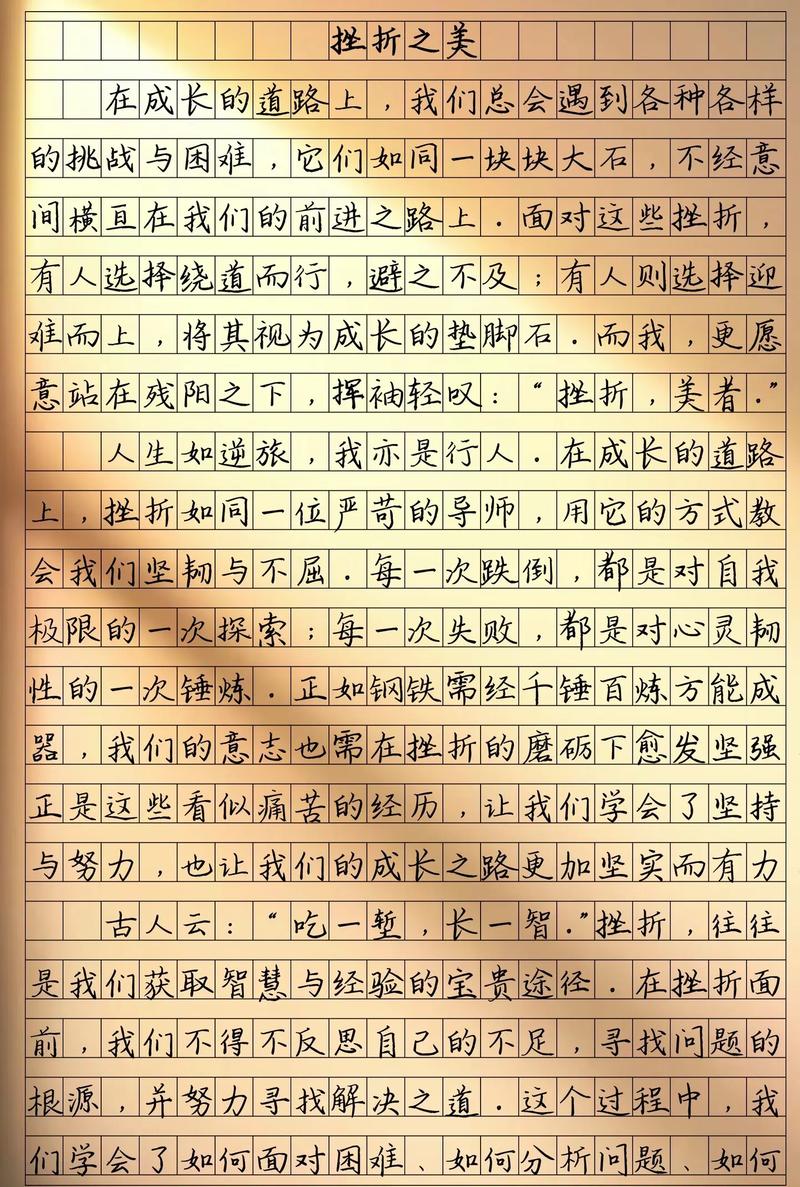 挫折之美
在成长的道路上，我们总会遇到各种各样
的挑战与困难，它们如同一块块大石，不经意
间横亘在我们的前进之路上．面对这些挫折，
有人选择绕道而行，避之不及；有人则选择迎
难而上，将其视为成长的垫脚石．而我，更愿
意站在残阳之下，挥袖轻叹：“挫折，美者．”
人生如逆旅，我亦是行人．在成长的道路
上，挫折如同一位严苛的导师，用它的方式教
会我们坚韧与不屈．每一次跌倒，都是对自我
极限的一次探索；每一次失败，都是对心灵韧
性的一次锤炼．正如钢铁需经千锤百炼方能成
器，我们的意志也需在挫折的磨砺下愈发坚强
正是这些看似痛苦的经历，让我们学会了坚持
与努力，也让我们的成长之路更加坚实而有力
古人云：“吃一堑，长一智．”挫折，往往
是我们获取智慧与经验的宝贵途径．在挫折面
前，我们不得不反思自己的不足，寻找问题的
根源，并努力寻找解决之道．这个过程中，我
们学会了如何面对困难、如何分析问题、如何